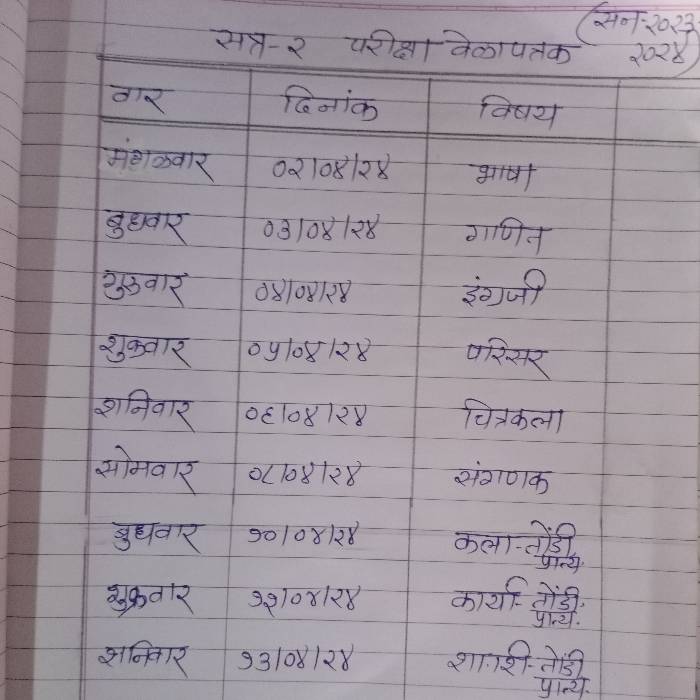 (सन-२०२३
सत्र-२ परीक्षा वेळापत्रक २०२४)
वार दिनांक विषय
मंगळवार ०२/०४/२४ भाषा
बुधवार ०३/०४/२४ गणित
गुरुवार ०४/०४/२४ इंग्रजी
शुक्रवार ०५/०४/२४ परिसर
शनिवार ०६/०४/२४ चित्रकला
सोमवार ०८/०४/२४ संगणक
बुधवार १०/०४/२४ कला-तोंडी
प्रात्य.
शुक्रवार १२/०४/२४ कार्या-तोंडी.
प्रात्य.
शनिवार १३/०४/२४ शा.शि-तोंडी
प्रात्य.